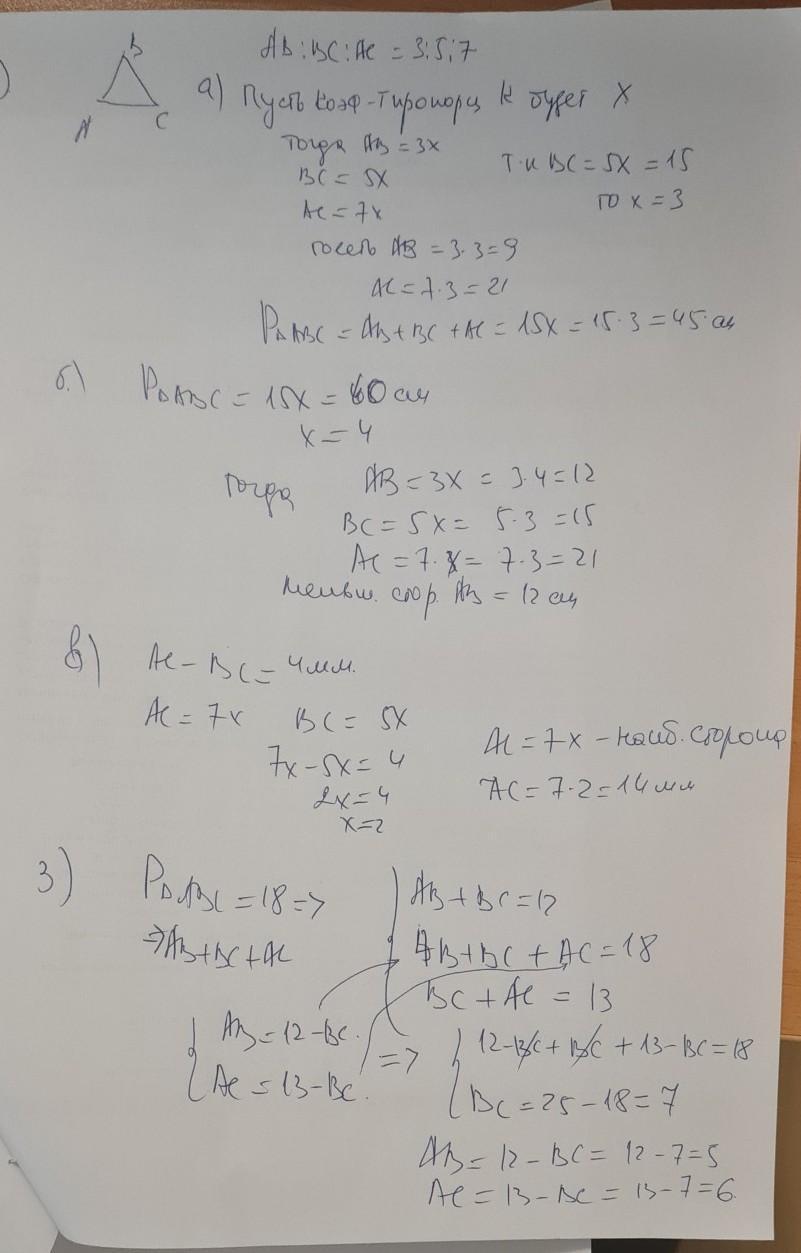 )
B
A
C
AB : BC : AC = 3:5:7
а) Пусть коэф-т пропорц к будет x
тогда AB = 3x
BC = 5x
AC = 7x
т.к BC = 5x = 15
то x = 3
AB = 3·3=9
AC = 7·3 = 21
P△ABC = AB + BC + AC = 15x = 15·3 = 45 см
б.)
P△ABC = 15x = 60 см
x = 4
тогда AB = 3x = 3·4=12
BC = 5x = 5·3 =15
AC = 7·x = 7·3 = 21
меньш. стор. AB = 12 см
в) AC - BC = 4мм.
AC = 7x BC = 5x
7x - 5x = 4
2x = 4
x=2
AC = 7x - наиб. сторона
AC = 7·2 = 14 мм
3) P△ABC = 18 =>
=> AB+BC+AC
AB + BC = 12
AB+BC + AC = 18
BC + AC = 13
AB = 12 - BC.
AC = 13 - BC.
=>
12-BC + BC + 13 - BC = 18
BC = 25 - 18 = 7
AB = 12 - BC = 12 - 7 = 5
AC = 13 - BC = 13 - 7 = 6.